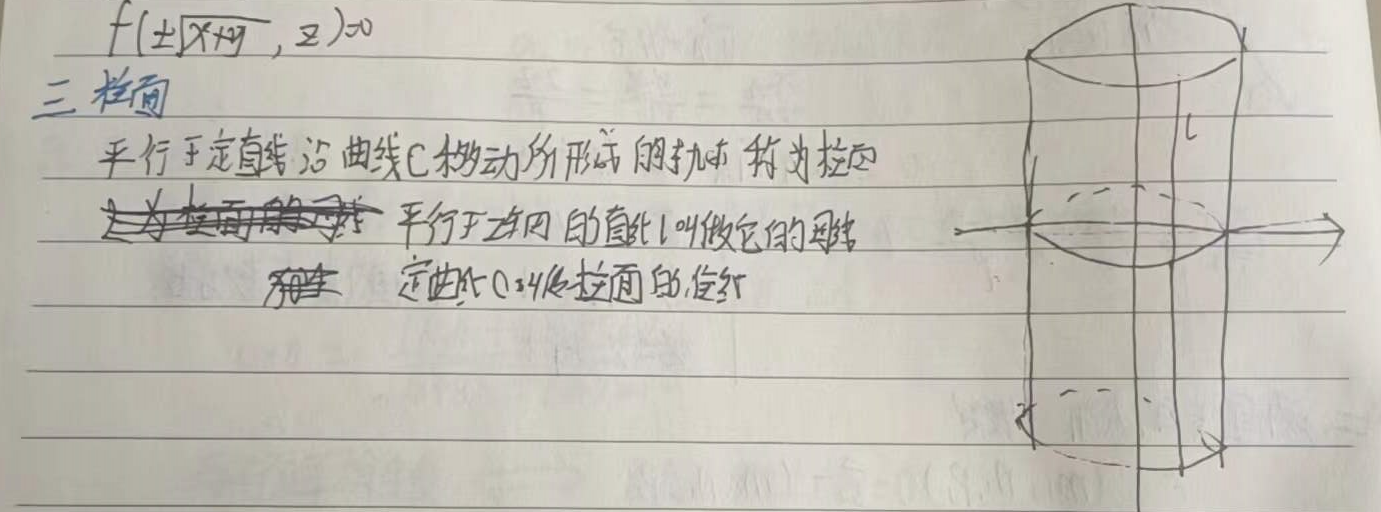 f(±√x+y, z)=0
三 柱面
平行于定直线沿曲线C移动所形成的轨迹称为柱面
平行于z轴的直线l叫做它的母线
定曲线C叫做柱面的准线
l